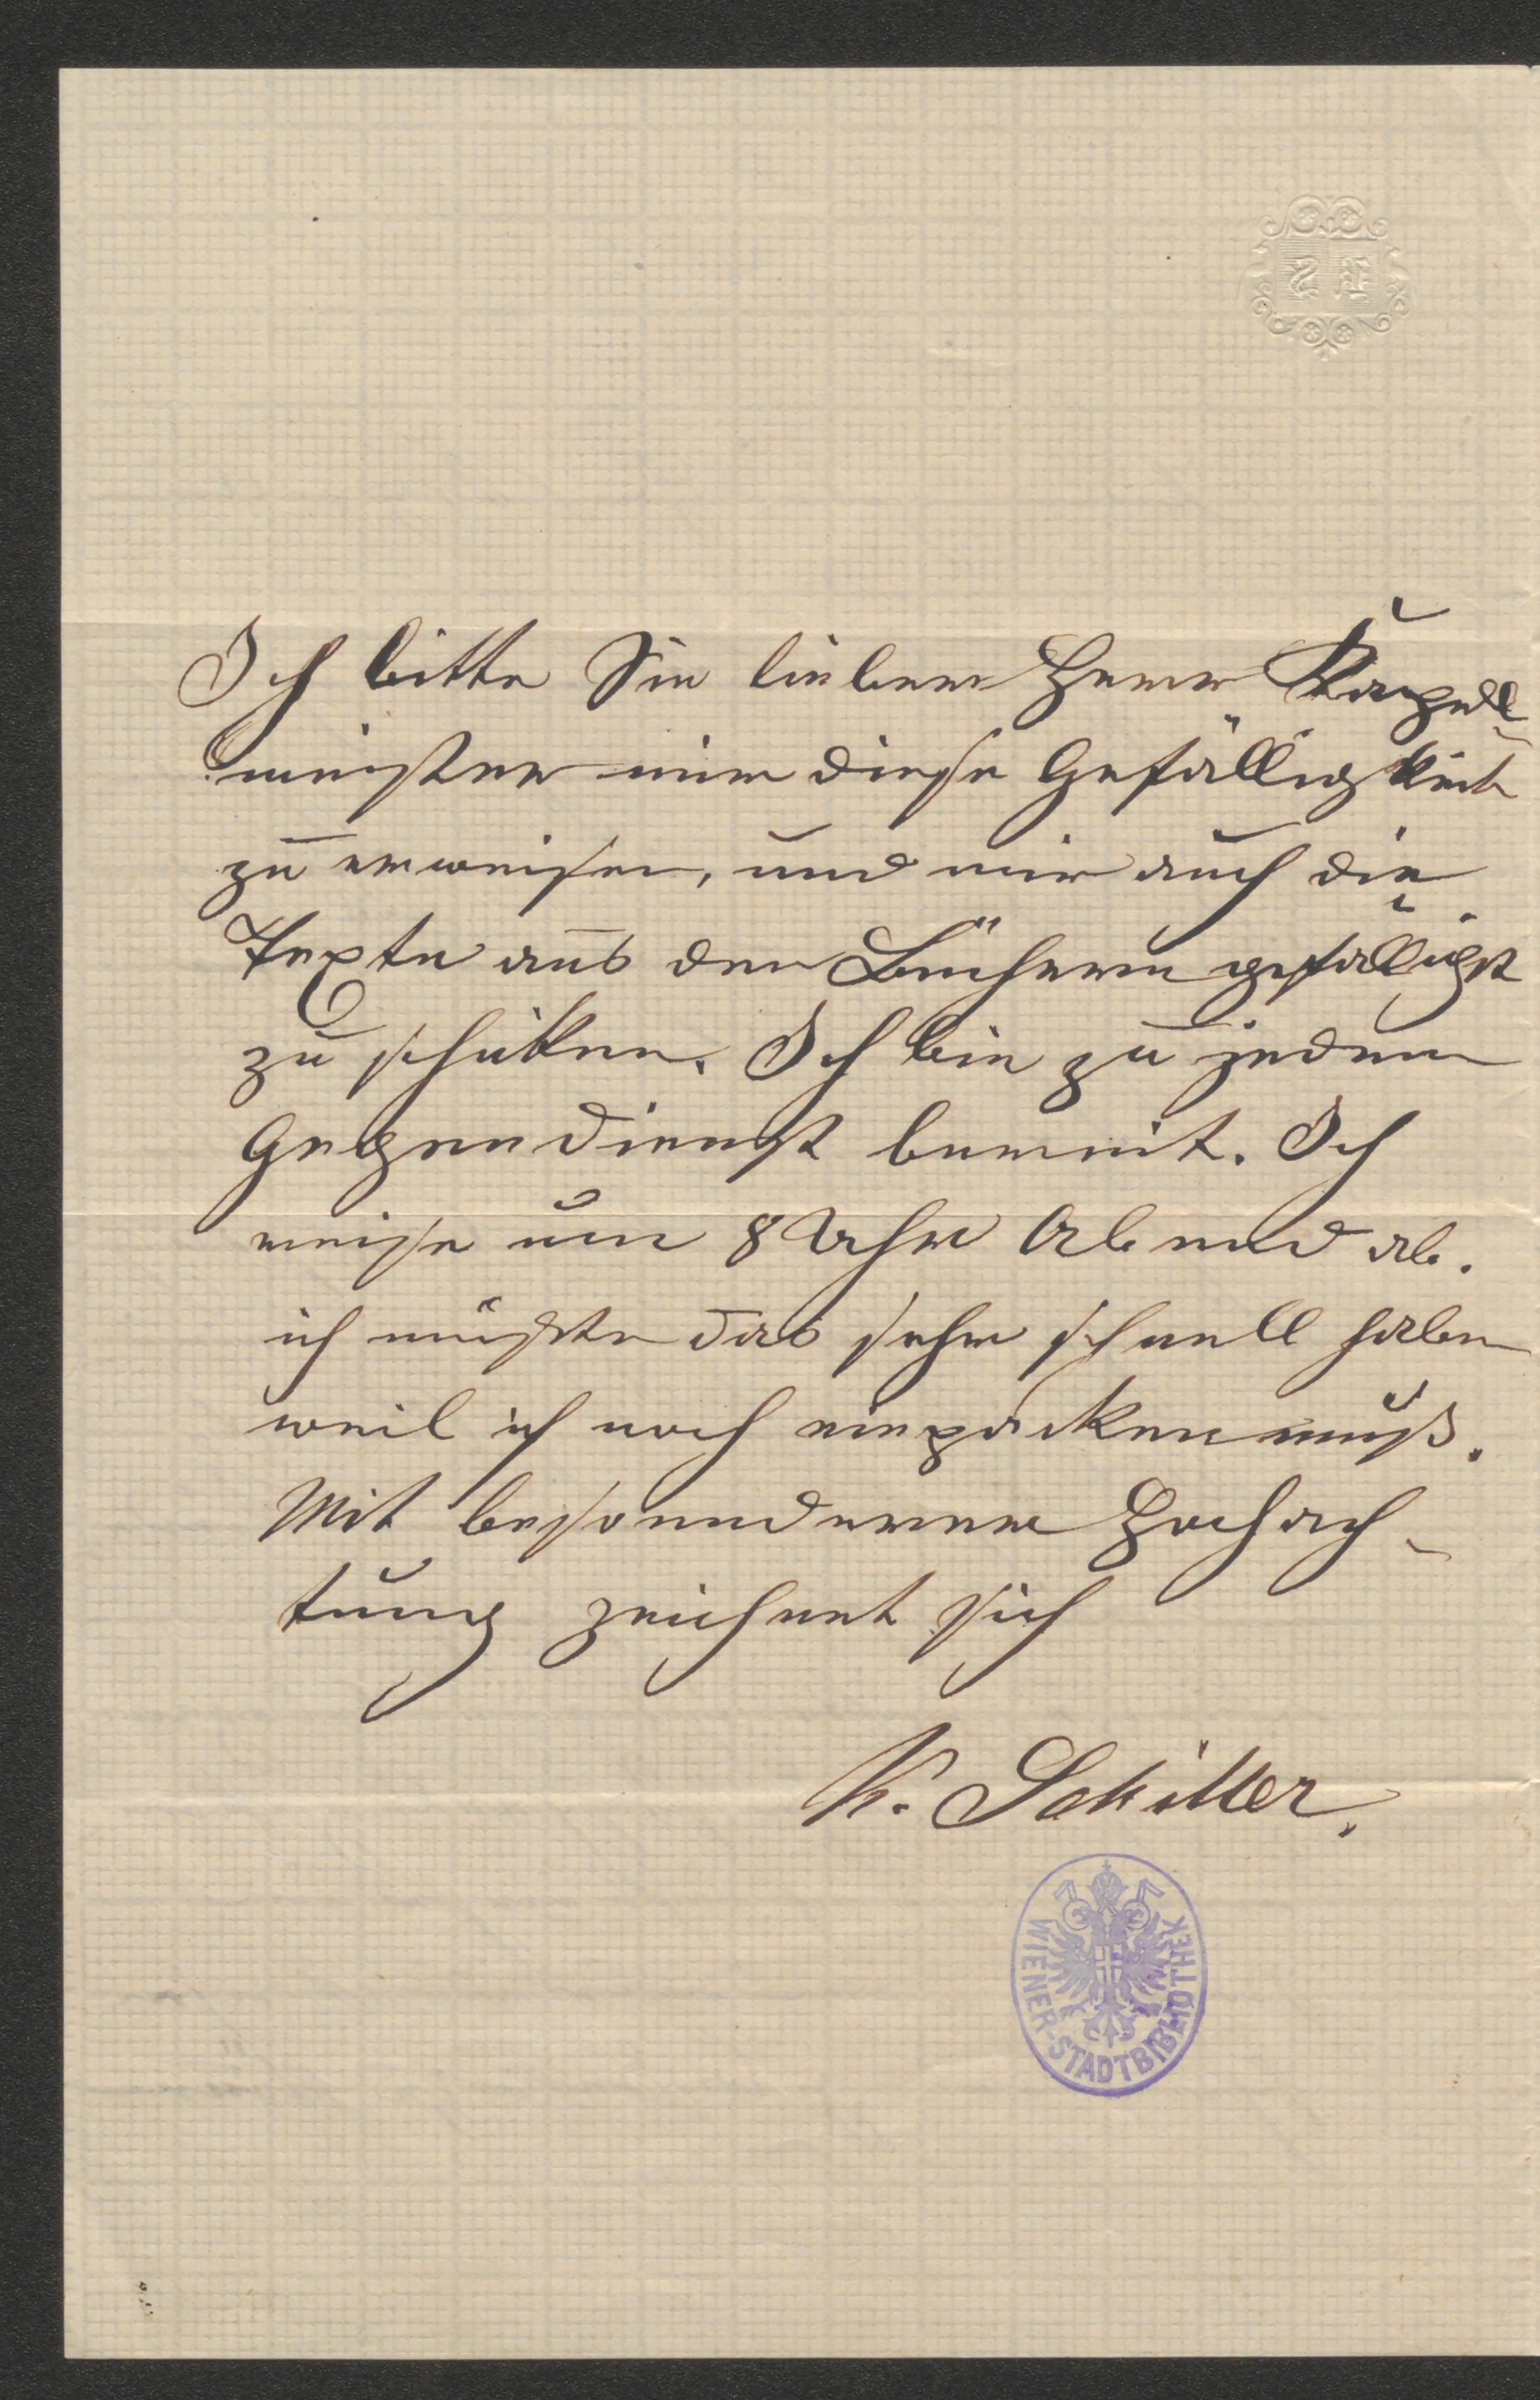 Ich bitte Sie lieber Herr Kapell-
meister mir diese Gefälligkeit
zu erweisen, und mir auch die
Texte aus den Büchern gefälligst
zu schicken. Ich bin zu jedem
Gegendienst bereit. Ich
reise um 8 Uhr Abend ab.
ich müßte das sehr schnell haben
weil ich noch einpacken muß.
Mit besonderer Hochach-
tung zeichnet sich
K. Schiller.
WIENER-STADTBIBLIOTHEK